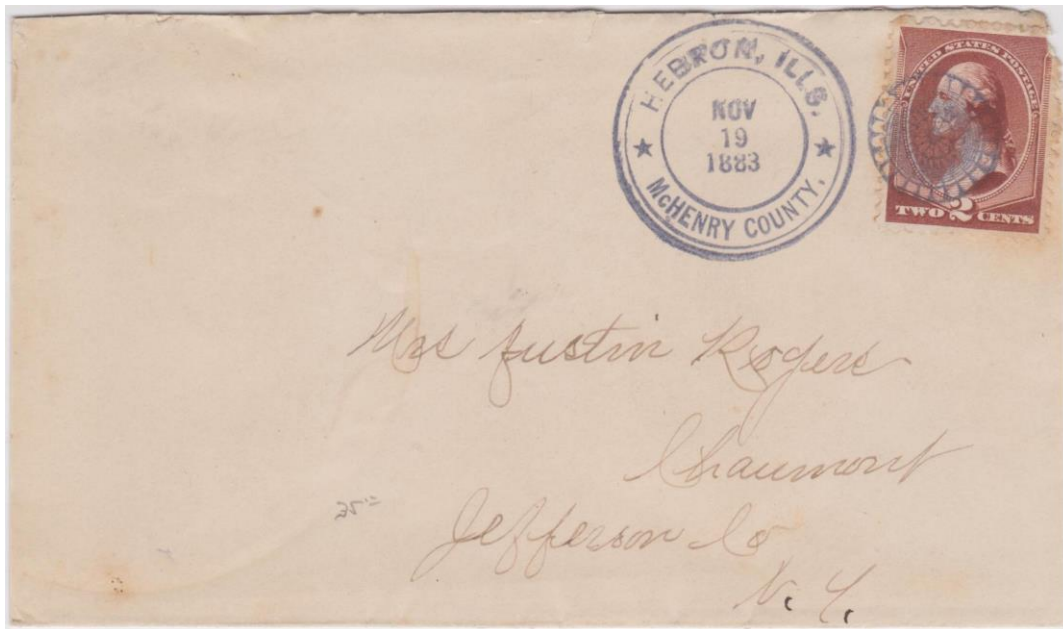 HEBRON, ILLS.
NOV
19
1883
McHENRY COUNTY.
UNITED STATES POSTAGE
TWO 2 CENTS
Mrs Justin Rogers
Chaumont
Jefferson Co
N. Y.